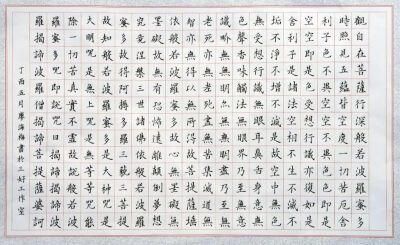 觀自在菩薩行深般若波羅蜜多
時照見五蘊皆空度一切苦厄舍
利子色不異空空不異色色即是
空空即是色受想行識亦復如是
舍利子是諸法空相不生不滅不
垢不淨不增不減是故空中無色
無受想行識無眼耳鼻舌身意無
色聲香味觸法無眼界乃至無意
識界無無明亦無無明盡乃至無
老死亦無老死盡無苦集滅道無
智亦無得以無所得故菩提薩埵
依般若波羅蜜多故心無罣礙無
罣礙故無有恐怖遠離顛倒夢想
究竟涅槃三世諸佛依般若波羅
蜜多故得阿耨多羅三藐三菩提
故知般若波羅蜜多是大神咒是
大明咒是無上咒是無等等咒能
除一切苦真實不虛故說般若波
羅蜜多咒即說咒曰揭諦揭諦波
羅揭諦波羅僧揭諦菩提薩婆訶
丁酉五月廖海梅書於三好工作室